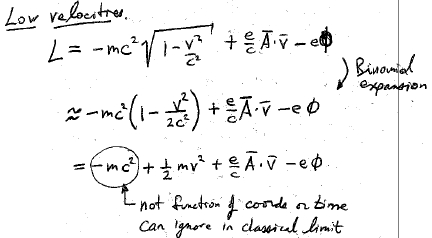 Low velocities.
L = -mc²√(1 - v²/c²) + e/c Ā·v̄ - eϕ
) Binomial
expansion
≈ -mc²(1 - v²/2c²) + e/c Ā·v̄ - eϕ
= -mc² + ½ mv² + e/c Ā·v̄ - eϕ
not function of coords or time
can ignore in classical limit